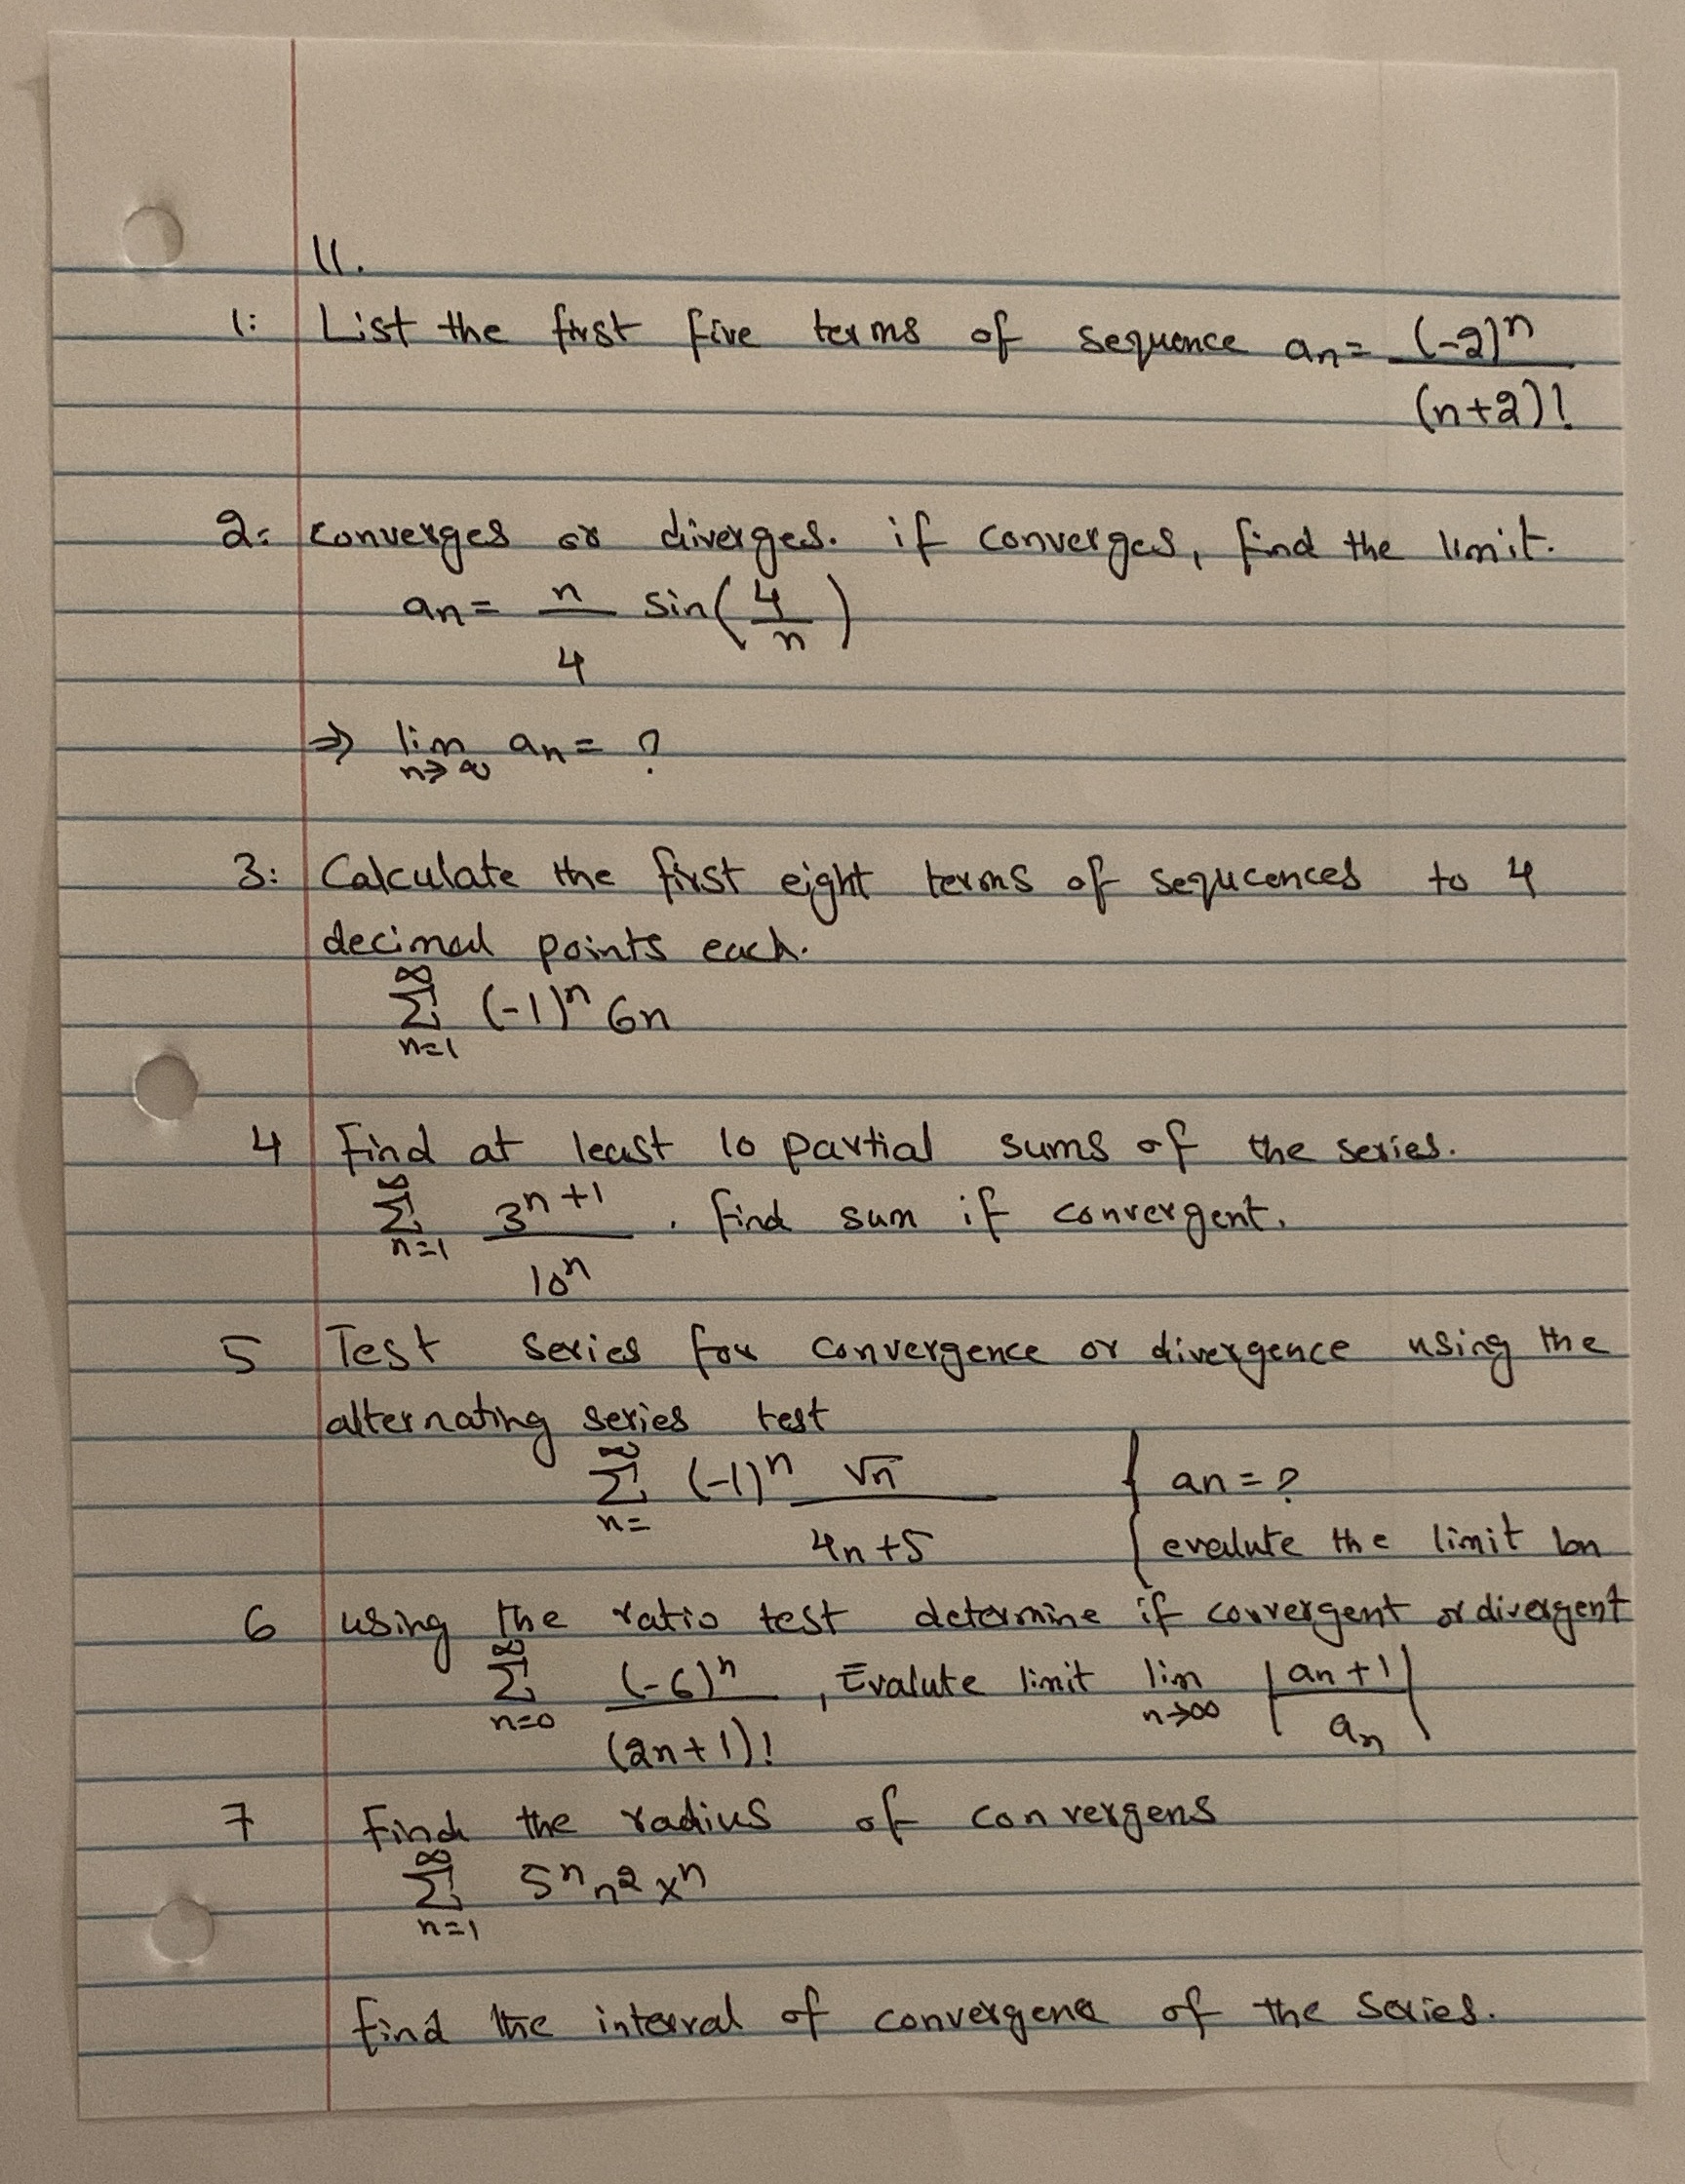 11.
1: List the first five terms of sequence an = (-2)^n / (n+2)!
2: converges or diverges. if converges, find the limit.
an = n/4 sin(4/n)
⇒ lim n→∞ an = ?
3: Calculate the first eight terms of sequcences to 4
decimal points each.
∞ Σ n=1 (-1)^n 6n
4 Find at least 10 partial sums of the series.
∞ Σ n=1 3^n+1 / 10^n . find sum if convergent.
5 Test series for convergence or divergence using the
alternating series test
∞ Σ n= (-1)^n √n / 4n+5 { an = ?
{ evalute the limit bn
6 using the ratio test determine if convergent or divergent
∞ Σ n=0 (-6)^n / (2n+1)! , Evalute limit lim n→∞ | an+1 / an |
7 Find the radius of convergens
∞ Σ n=1 5^n n^2 x^n
find the interval of convergene of the series.